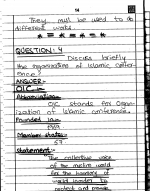 14
They will be used to do
different works.
QUESTION: 4
Discuss briefly
the organization of islamic confer-
ence?
ANSWER:-
OIC:-
Abbreviation:-
OIC stands for Organ-
ization of Islamic conference.
Founded in:-
1969
Member states:-
57
Statement:-
The collective voice
of the muslim world
for the
world
protect and